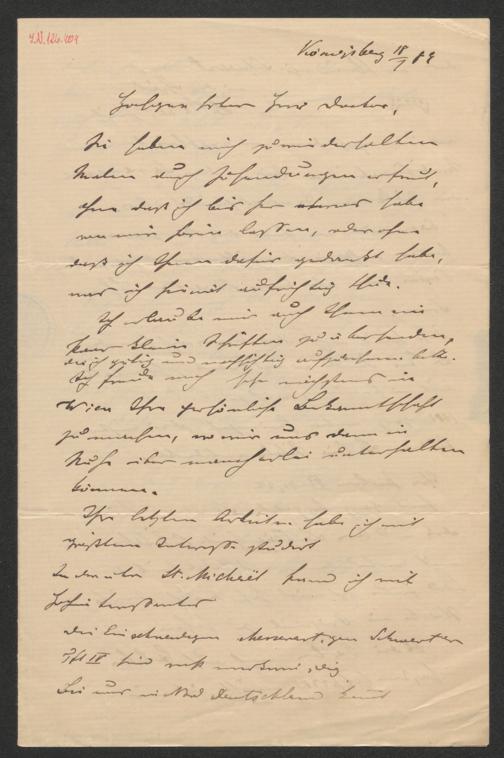 I.N. 126.409
Königsberg 18/7 89
Hochgeehrter Herr Doctor,
Sie haben mich zu wiederholten
Malen durch Zusendungen erfreut,
ohne daß ich bis her etwas habe
von mir hören lassen, oder ohne
daß ich Ihnen dafür gedankt habe,
was ich hiermit aufrichtig thue.
Ich erlaube mir auch Ihnen ein
Paar kleine Schriften zu übersenden,
die ich gütig und nachsichtig aufzunehmen bitte.
Ich freue mich sehr nächstens in
Wien Ihre persönliche Bekanntschaft
zu machen, wo wir uns dann in
Ruhe über mancherlei unterhalten
können.
Ihre letzten Arbeiten habe ich mit
größtem Interesse studirt
In der über St. Michael fand ich
die Einschneidigen messerartigen Schwerter
sind
Bei uns in Nord Deutschland